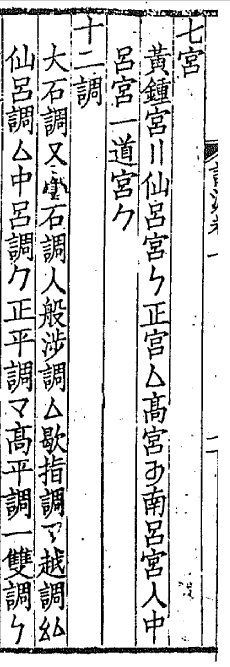 七宮
黃鍾宮〢仙呂宮ㄣ正宮厶高宮南呂宮人中
呂宮一道宮ク
十二調
大石調又石調人般涉調厶歇指調越調
仙呂調厶中呂調ク正平調マ高平調一雙調ㄣ